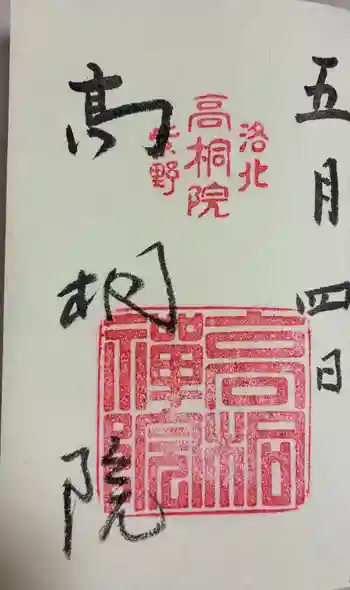 五月四日
洛北
高桐院
紫野
高桐禅院
高桐院